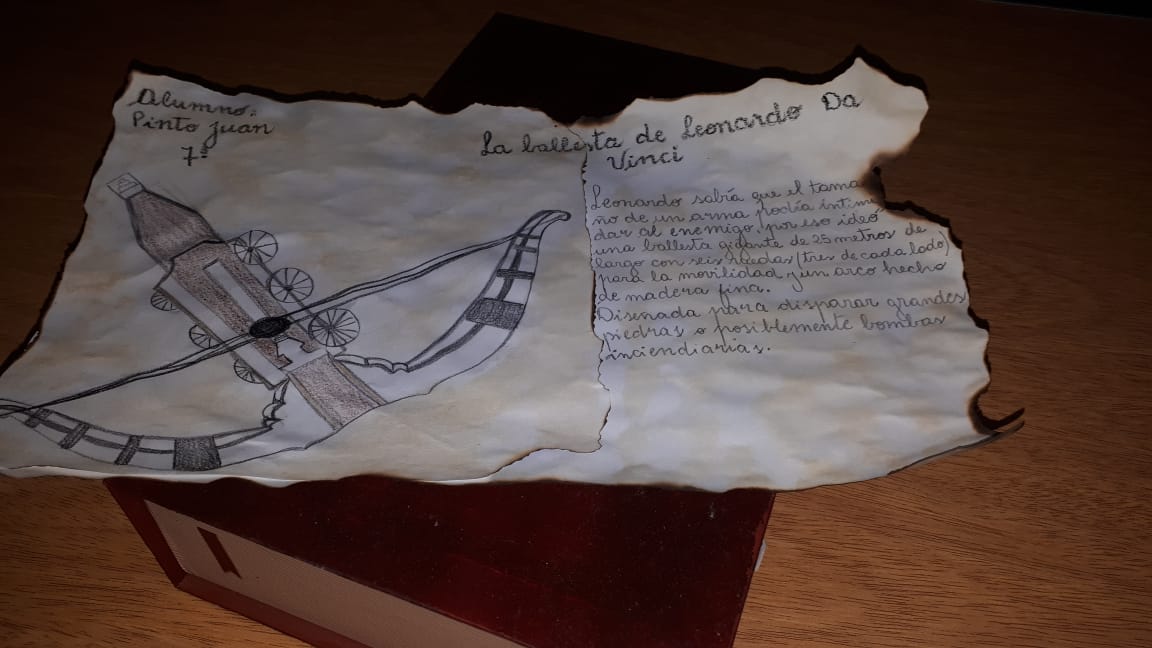 Alumno:
Pinto Juan
7º
La ballesta de Leonardo Da
Vinci
Leonardo sabía que el tama
ño de un arma podía intimi
dar al enemigo, por eso ideó
una ballesta gigante de 25 metros de
largo con seis ruedas (tres de cada lado)
para la movilidad y un arco hecho
de madera fina.
Diseñada para disparar grandes
piedras o posiblemente bombas
inciendiarias.